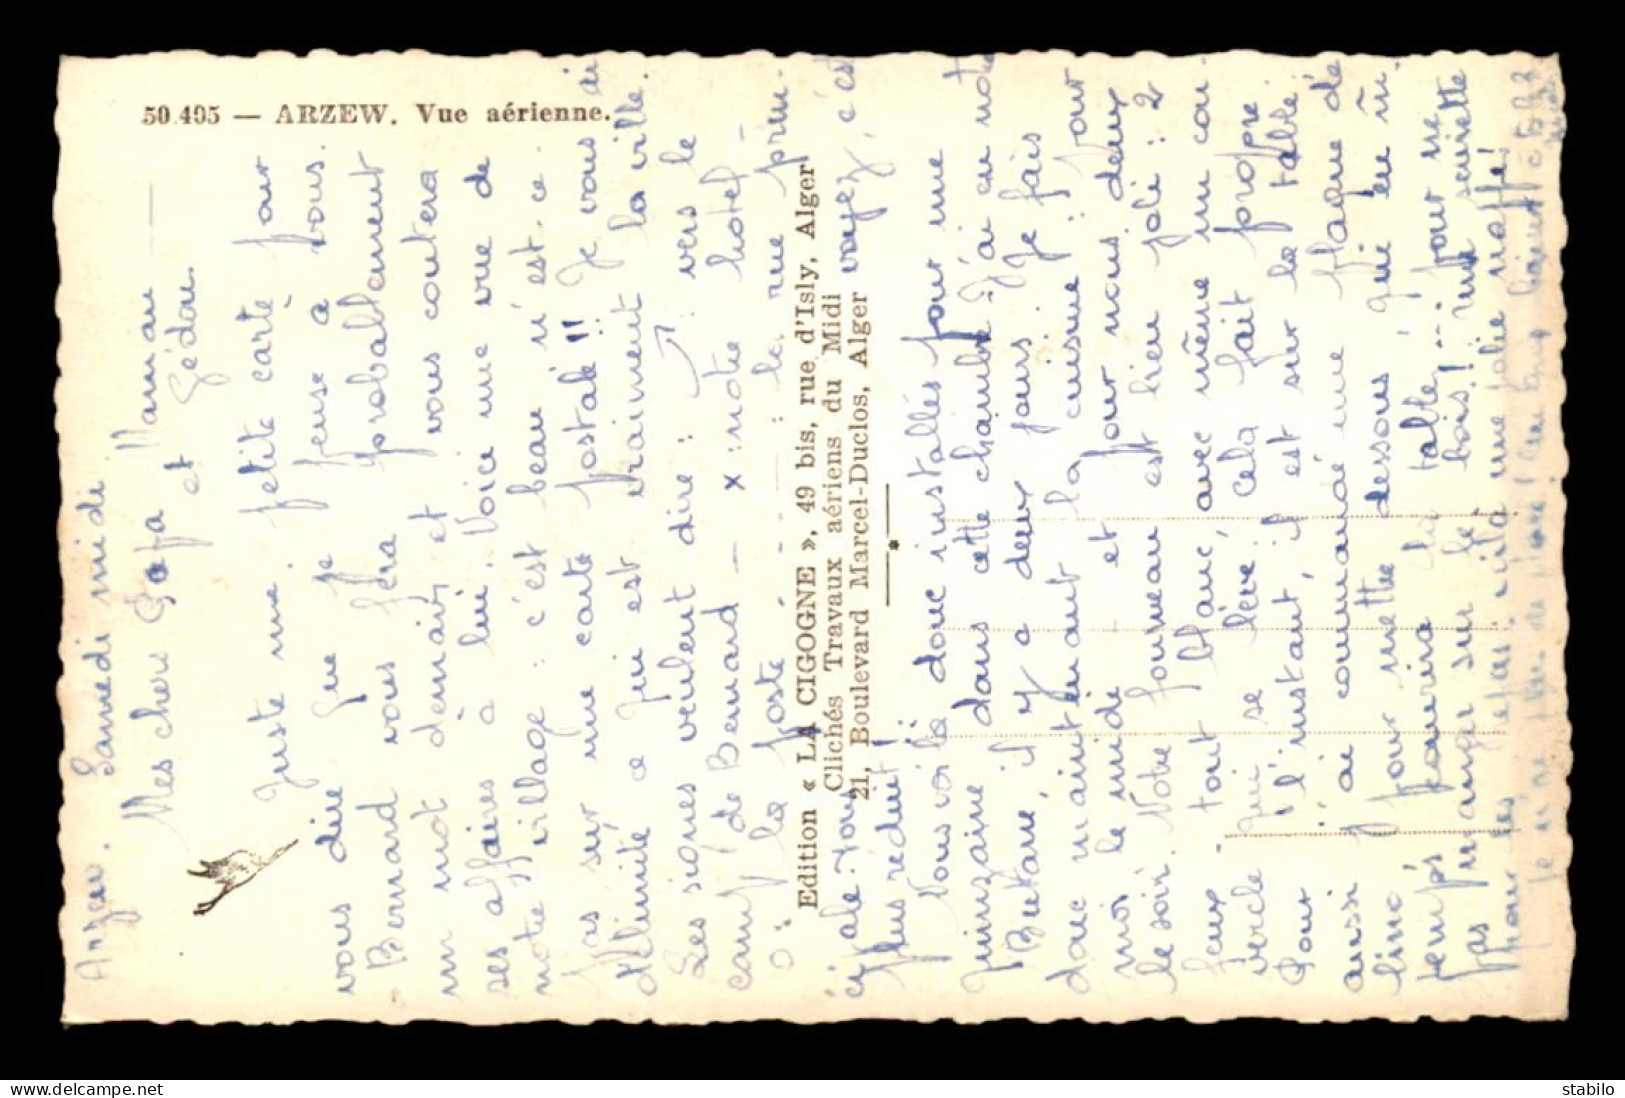 50.495 — ARZEW. Vue aérienne.
Arzew. Samedi midi
Mes chers Papa Maman
et Gédou.
Juste une petite carte pour
vous dire que je pense à vous.
Bernard vous fera probablement
un mot demain, et vous contera
ses affaires à lui. Voici une vue de
notre village : c'est beau n'est-ce
pas sur une carte postale !! Je vous ai
délimité ce qui est vraiment la ville.
Les signes veulent dire : vers le
camp de Bernard — x : notre hotel —
o : la poste - - - : la rue prin-
cipale. Vous voyez, c'est
plus réduit !
Edition « LA CIGOGNE », 49 bis, rue d'Isly, Alger
Clichés Travaux aériens du Midi
21, Boulevard Marcel-Duclos, Alger
Vous voilà donc installés pour une
quinzaine dans cette chambre. J'ai eu notre
Butane, il y a deux jours. Je fais
donc maintenant la cuisine : pour
moi le midi et pour nous deux
le soir. Notre fourneau est bien joli : 2
feux - tout blanc, avec même un cou-
vercle qui se lève, cela fait propre
Pour l'instant, il est sur la table.
J'ai commandé une plaque de
aussi pour mettre dessous, qui en mê-
lino couvrira la table : pour ne
temps manger sur le bois ! une serviette
pas repas, voilà une jolie nappe !
pour les
Je n'ai plus de place !